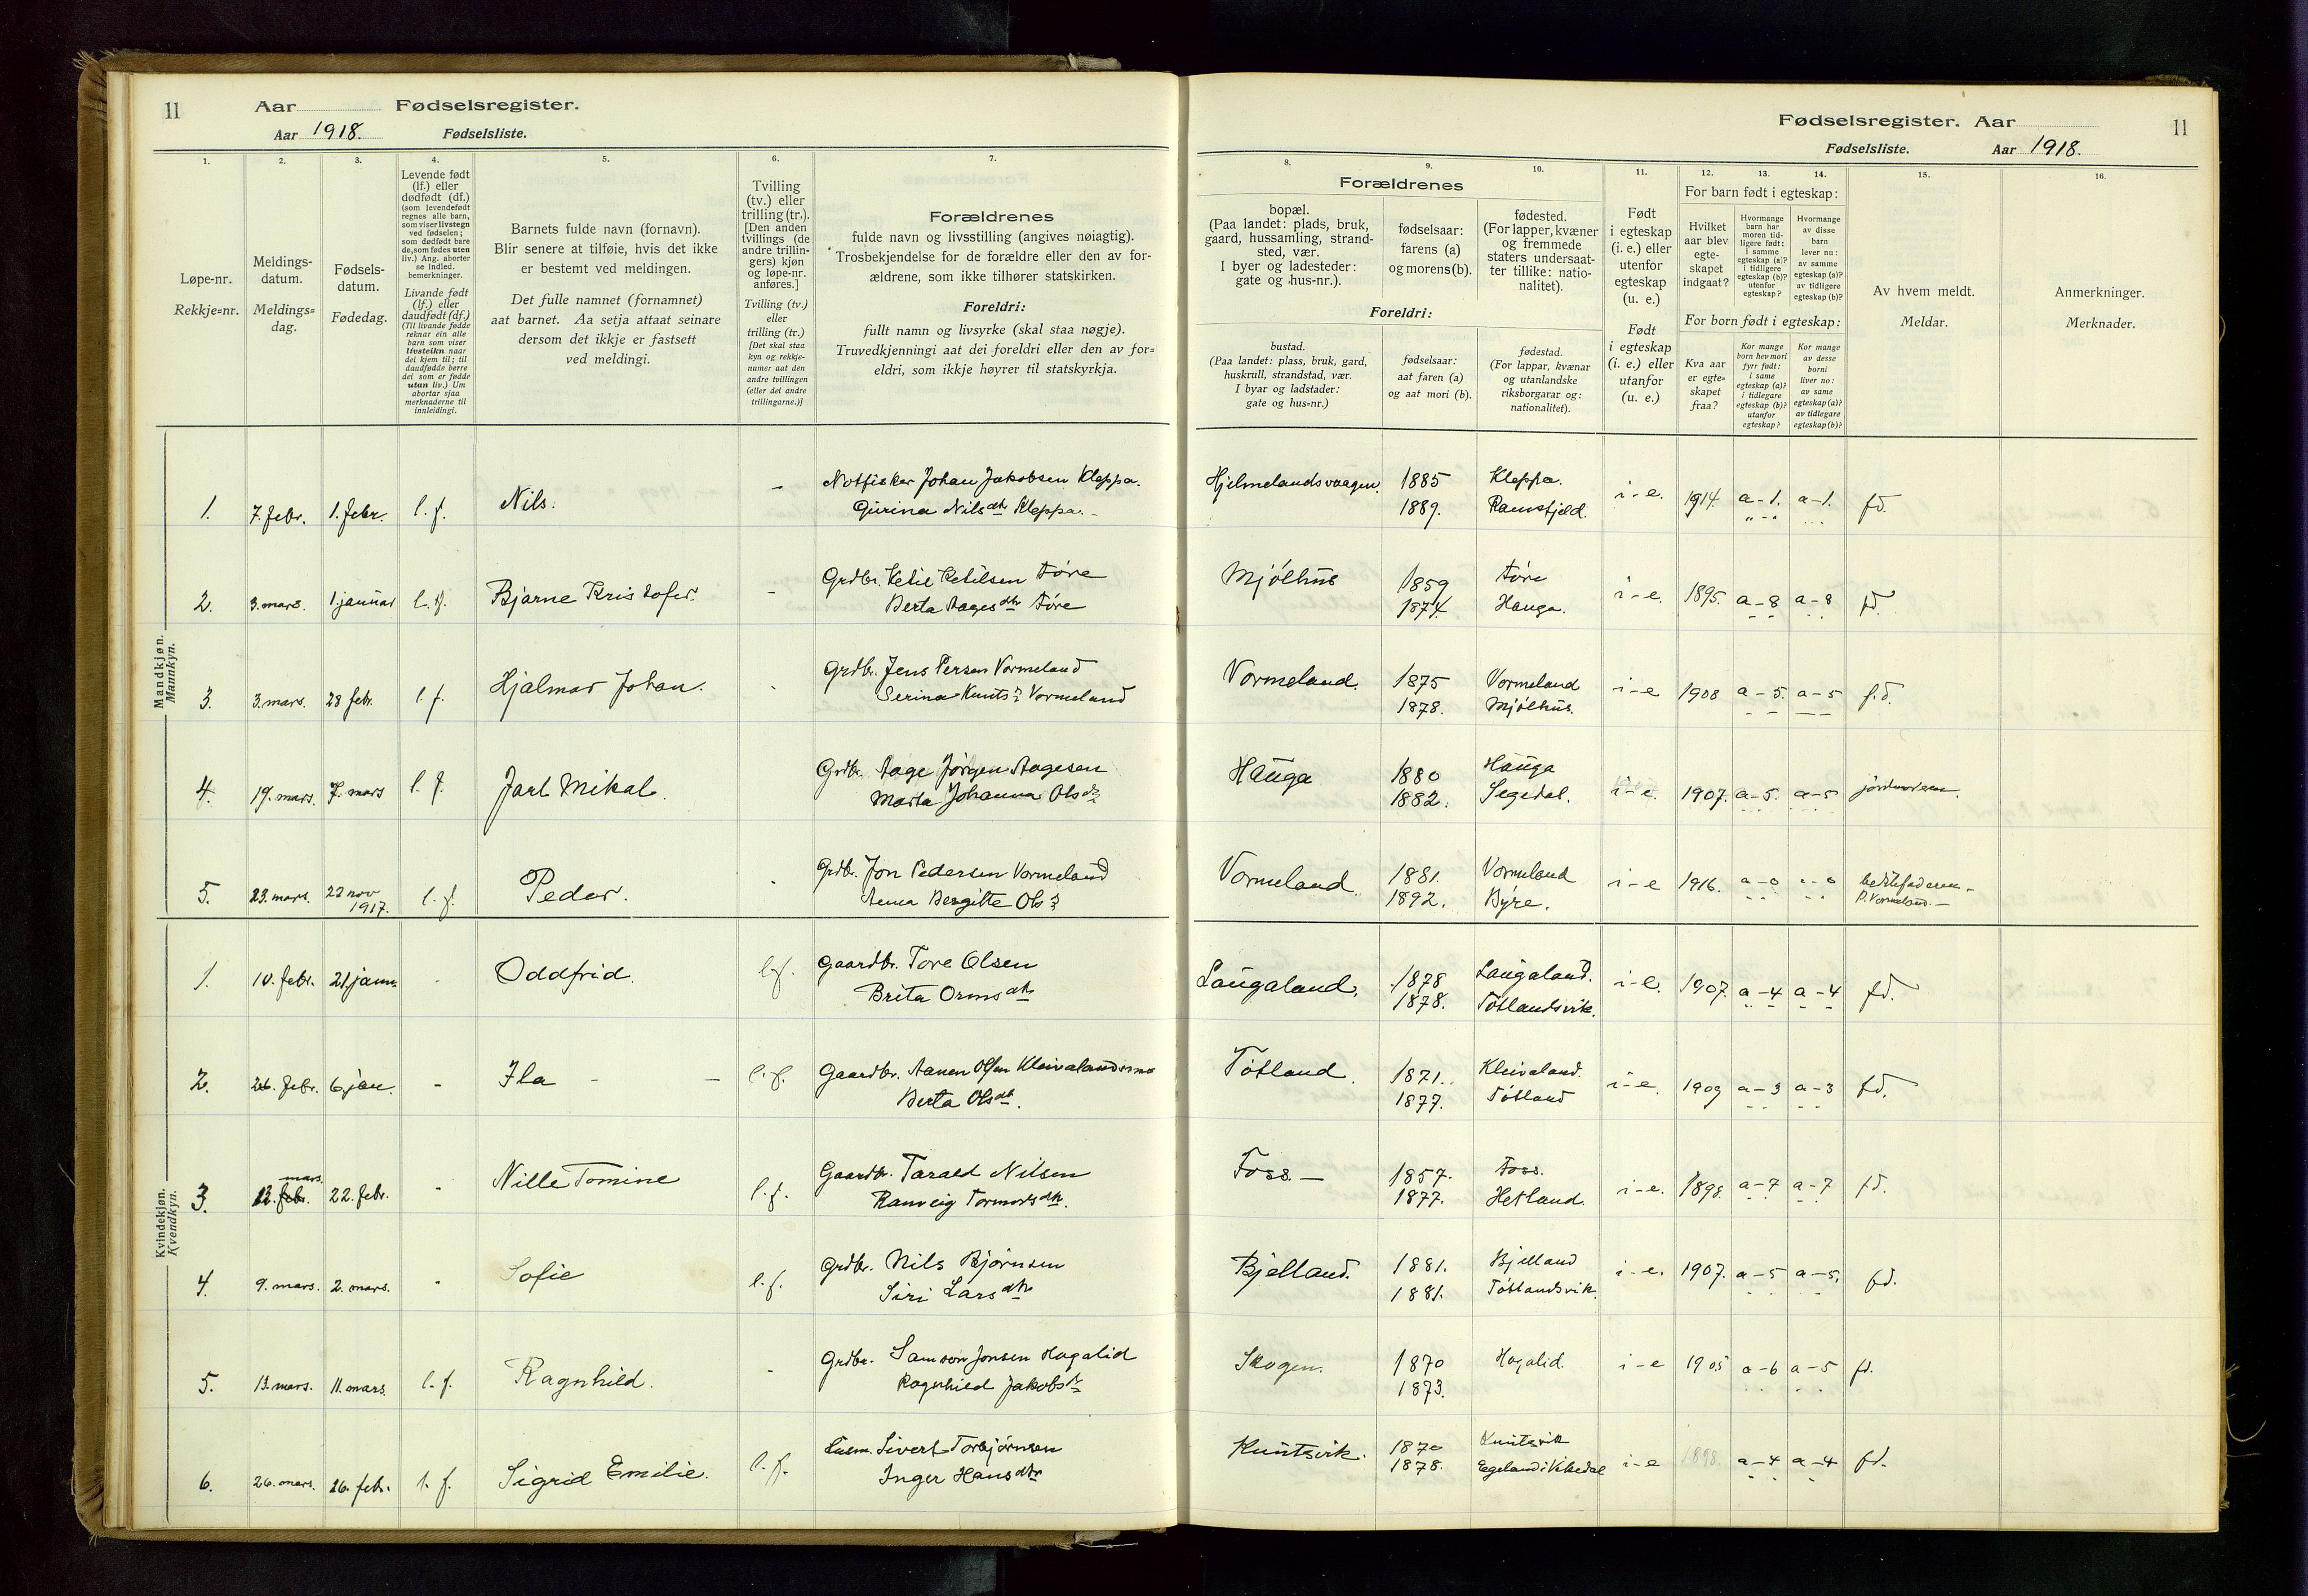 11 Aar Fødselsregister.
Aar 1918. Fødselsliste.
1. 2. 3. 4. 5. 6. 7.
Løpe-nr.
Rekkje=nr.
Meldings-
datum.
Meldings=
dag.
Fødsels-
datum.
Fødedag.
Levende født
(lf.) eller
dødfødt (df.)
(som levendefødt
regnes alle barn,
som viser livstegn
ved fødselen;
som dødfødt bare
de, som fødes uten
liv.) Ang. aborter
se indled.
bemerkninger.
Livande født
(lf.) eller
daudfødt (df.)
(Til livande fødde
reknar ein alle
barn som viser
livsteikn naar
dei kjem til; til
daudfødde berre
dei som er fødde
utan liv.) Um
abortar sjaa
merknaderne til
innleidingi.
Barnets fulde navn (fornavn).
Blir senere at tilføie, hvis det ikke
er bestemt ved meldingen.
Det fulle namnet (fornamnet)
aat barnet. Aa setja attaat seinare
dersom det ikkje er fastsett
ved meldingi.
Tvilling
(tv.) eller
trilling (tr.).
[Den anden
tvillings (de
andre trillin-
gers) kjøn
og løpe-nr.
anføres.]
Tvilling (tv.)
eller
trilling (tr.)
[Det skal staa
kyn og rekkje-
numer aat den
andre tvillingen
(eller dei andre
trillingarne.)]
Forældrenes
fulde navn og livsstilling (angives nøiagtig).
Trosbekjendelse for de forældre eller den av for-
ældrene, som ikke tilhører statskirken.
Foreldri:
fullt namn og livsyrke (skal staa nøgje).
Truvedkjenningi aat dei foreldri eller den av for=
eldri, som ikkje høyrer til statskyrkja.
Mandkjøn.
Mannkyn.
1. 7. febr. 1. febr. l. f. Nils. - Notfisker Johan Jakobsen Kleppa.
Gurina Nilsdtr Kleppa. -
2. 3. mars. 1. januar l. f. Bjarne Kristofer. - Grdbr. Ketil Ketilsen Føre
Berta Aagesdtr Føre
3. 3. mars. 28 febr. l. f. Hjalmar Johan. - Grdbr. Jens Persen Vormeland
Serina Knuts Vormeland
4. 19. mars. 7. mars l. f. Jarl Mikal. Grdbr. Aage Jørgen Aagesen
Marta Johanna Ols
5. 23. mars. 22 nov
1917. l. f. Peder. - Grdbr. Jon Pedersen Vormeland
Anna Bergitte Ols
Kvindekjøn.
Kvendkyn.
1. 10. febr. 21. janu. - Oddfrid. l. f. Gaardbr. Tore Olsen
Brita Ormsdtr
2. 26. febr. 6 jan. - Ila - - l. f. Gaardbr. Aanen Olsen
Berta Olsdtr.
3. 12. mars. febr. 22. febr. - Nille Tomine l. f. Gaardbr. Tarald Nilsen
Ranveig Tormodsdtr.
4. 9. mars. 2. mars. - Sofie l. f. Grdbr. Nils Bjørnsen
Siri Larsdtr
5. 13. mars. 11. mars. l. f. Ragnhild. - Grdbr. Samson Jonsen Hagalid
Ragnhild Jakobs
6. 26. mars. 26. febr. l. f. Sigrid Emilie. l. f. Husm. Sivert Torbjørnsen
Inger Hansdtr
Fødselsregister. Aar 11
Fødselsliste. Aar 1918.
8. 9. 10. 11. 12. 13. 14. 15. 16.
Forældrenes
bopæl.
(Paa landet: plads, bruk,
gaard, hussamling, strand-
sted, vær.
I byer og ladesteder:
gate og hus-nr.).
fødselsaar:
farens (a)
og morens (b).
fødested.
(For lapper, kvæner
og fremmede
staters undersaat-
ter tillike: natio-
nalitet).
Foreldri:
bustad.
(Paa landet: plass, bruk, gard,
huskrull, strandstad, vær.
I byar og ladstader:
gate og hus=nr.)
fødselsaar:
aat faren (a)
og aat mori (b).
fødestad.
(For lappar, kvænar
og utanlandske
riksborgarar og:
nationalitet).
Født
i egteskap
(i. e.) eller
utenfor
egteskap
(u. e.)
Født
i egteskap
(i. e.) eller
utanfor
(u. e.)
For barn født i egteskap:
Hvilket
aar blev
egte-
skapet
indgaat?
Hvormange
barn har
moren tid-
ligere født:
i samme
egteskap (a)?
i tidligere
egteskap (b)?
utenfor
egteskap?
Hvormange
av disse
barn
lever nu:
av samme
egteskap (a)?
av tidligere
egteskap (b)?
For born født i egteskap:
Kva aar
er egte=
skapet
fraa?
Kor mange
born hev mori
fyrr født:
i same
egteskap (a)?
i tidlegare
egteskap (b)?
utanfor
egteskap?
Kor mange
av desse
borni
liver no:
av same
egteskap (a)?
av tidlegare
egteskap (b)?
Av hvem meldt.
Meldar.
Anmerkninger.
Merknader.
Hjelmelandsvaagen. 1885 Kleppa. i - e. 1914. a - 1. a - 1. fd.
1889. Ramsfjeld.
Mjølhus 1859 Føre i - e. 1895. a - 8 a - 8 fd.
1874. Hauga.
Vormeland. 1875 Vormeland i - e 1908 a - 5. a - 5 f.d.
1878. Mjølhus.
Hauga 1880 Hauga i - e. 1907. a - 5. a - 5 jordmoren.
1882. Segedal.
Vormeland. 1881. Vormeland i - e 1916. a - 0 - 0 bestefaderen -
1892. Byre. P. Vormeland. -
Laugaland. 1878 Laugaland. i - e. 1907. a - 4 a - 4 fd.
1878. Tøtlandsvik.
Tøtland. 1871. Kleivaland. i - e. 1909 a - 3 a - 3 fd.
1877. Tøtland
Foss. - 1857. Foss. i - e. 1898. a - 7 a - 7 fd.
1877. Hetland.
Bjelland. 1881. Bjelland i - e. 1907. a - 5 a - 5. fd.
1881. Tøtlandsvik.
Skogen. 1870 Hagalid. i - e 1905 a - 6 a - 5 fd.
1873.
Knutsvik. 1870 Knutsvik i - e 1898. a - 4 a - 4 fd.
1878. Egeland i Vikedal